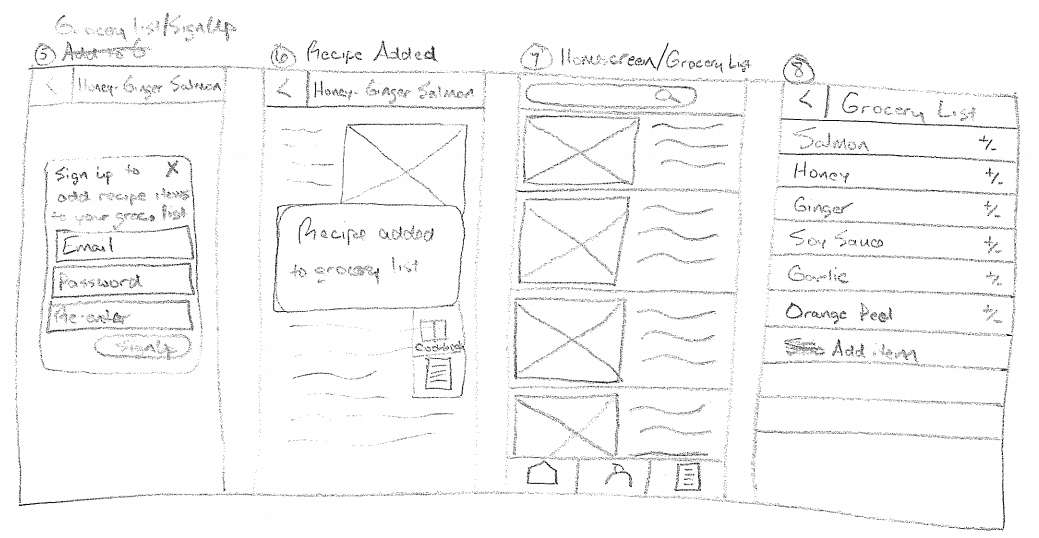 Grocery list/Sign Up
5 Add to G
< Honey-Ginger Salmon
Sign up to X
add recipe items
to your groc. list
Email
Password
Re-enter
Sign Up
6 Recipe Added
< Honey-Ginger Salmon
Recipe added
to grocery list
Cookbook
7 Homescreen/Grocery List
8
< Grocery List
Salmon +/-
Honey +/-
Ginger +/-
Soy Sauce +/-
Garlic +/-
Orange Peel +/-
Add item